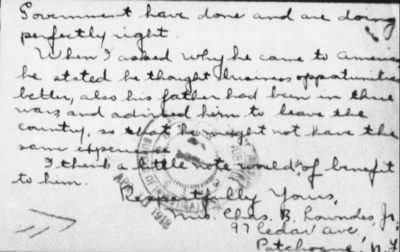 Government have done and are doing
perfectly right.
When I asked why he came to America
he stated he thought business opportunities
better, also his father had been in three
wars and advised him to leave the
country, so that he might not have the
same experience.
I think a little note would be of benefit
to him.
Respectfully Yours,
Mrs. Chas. B. Lowndes, Jr.
97 Cedar ave,
Patchogue, N.Y.
1918